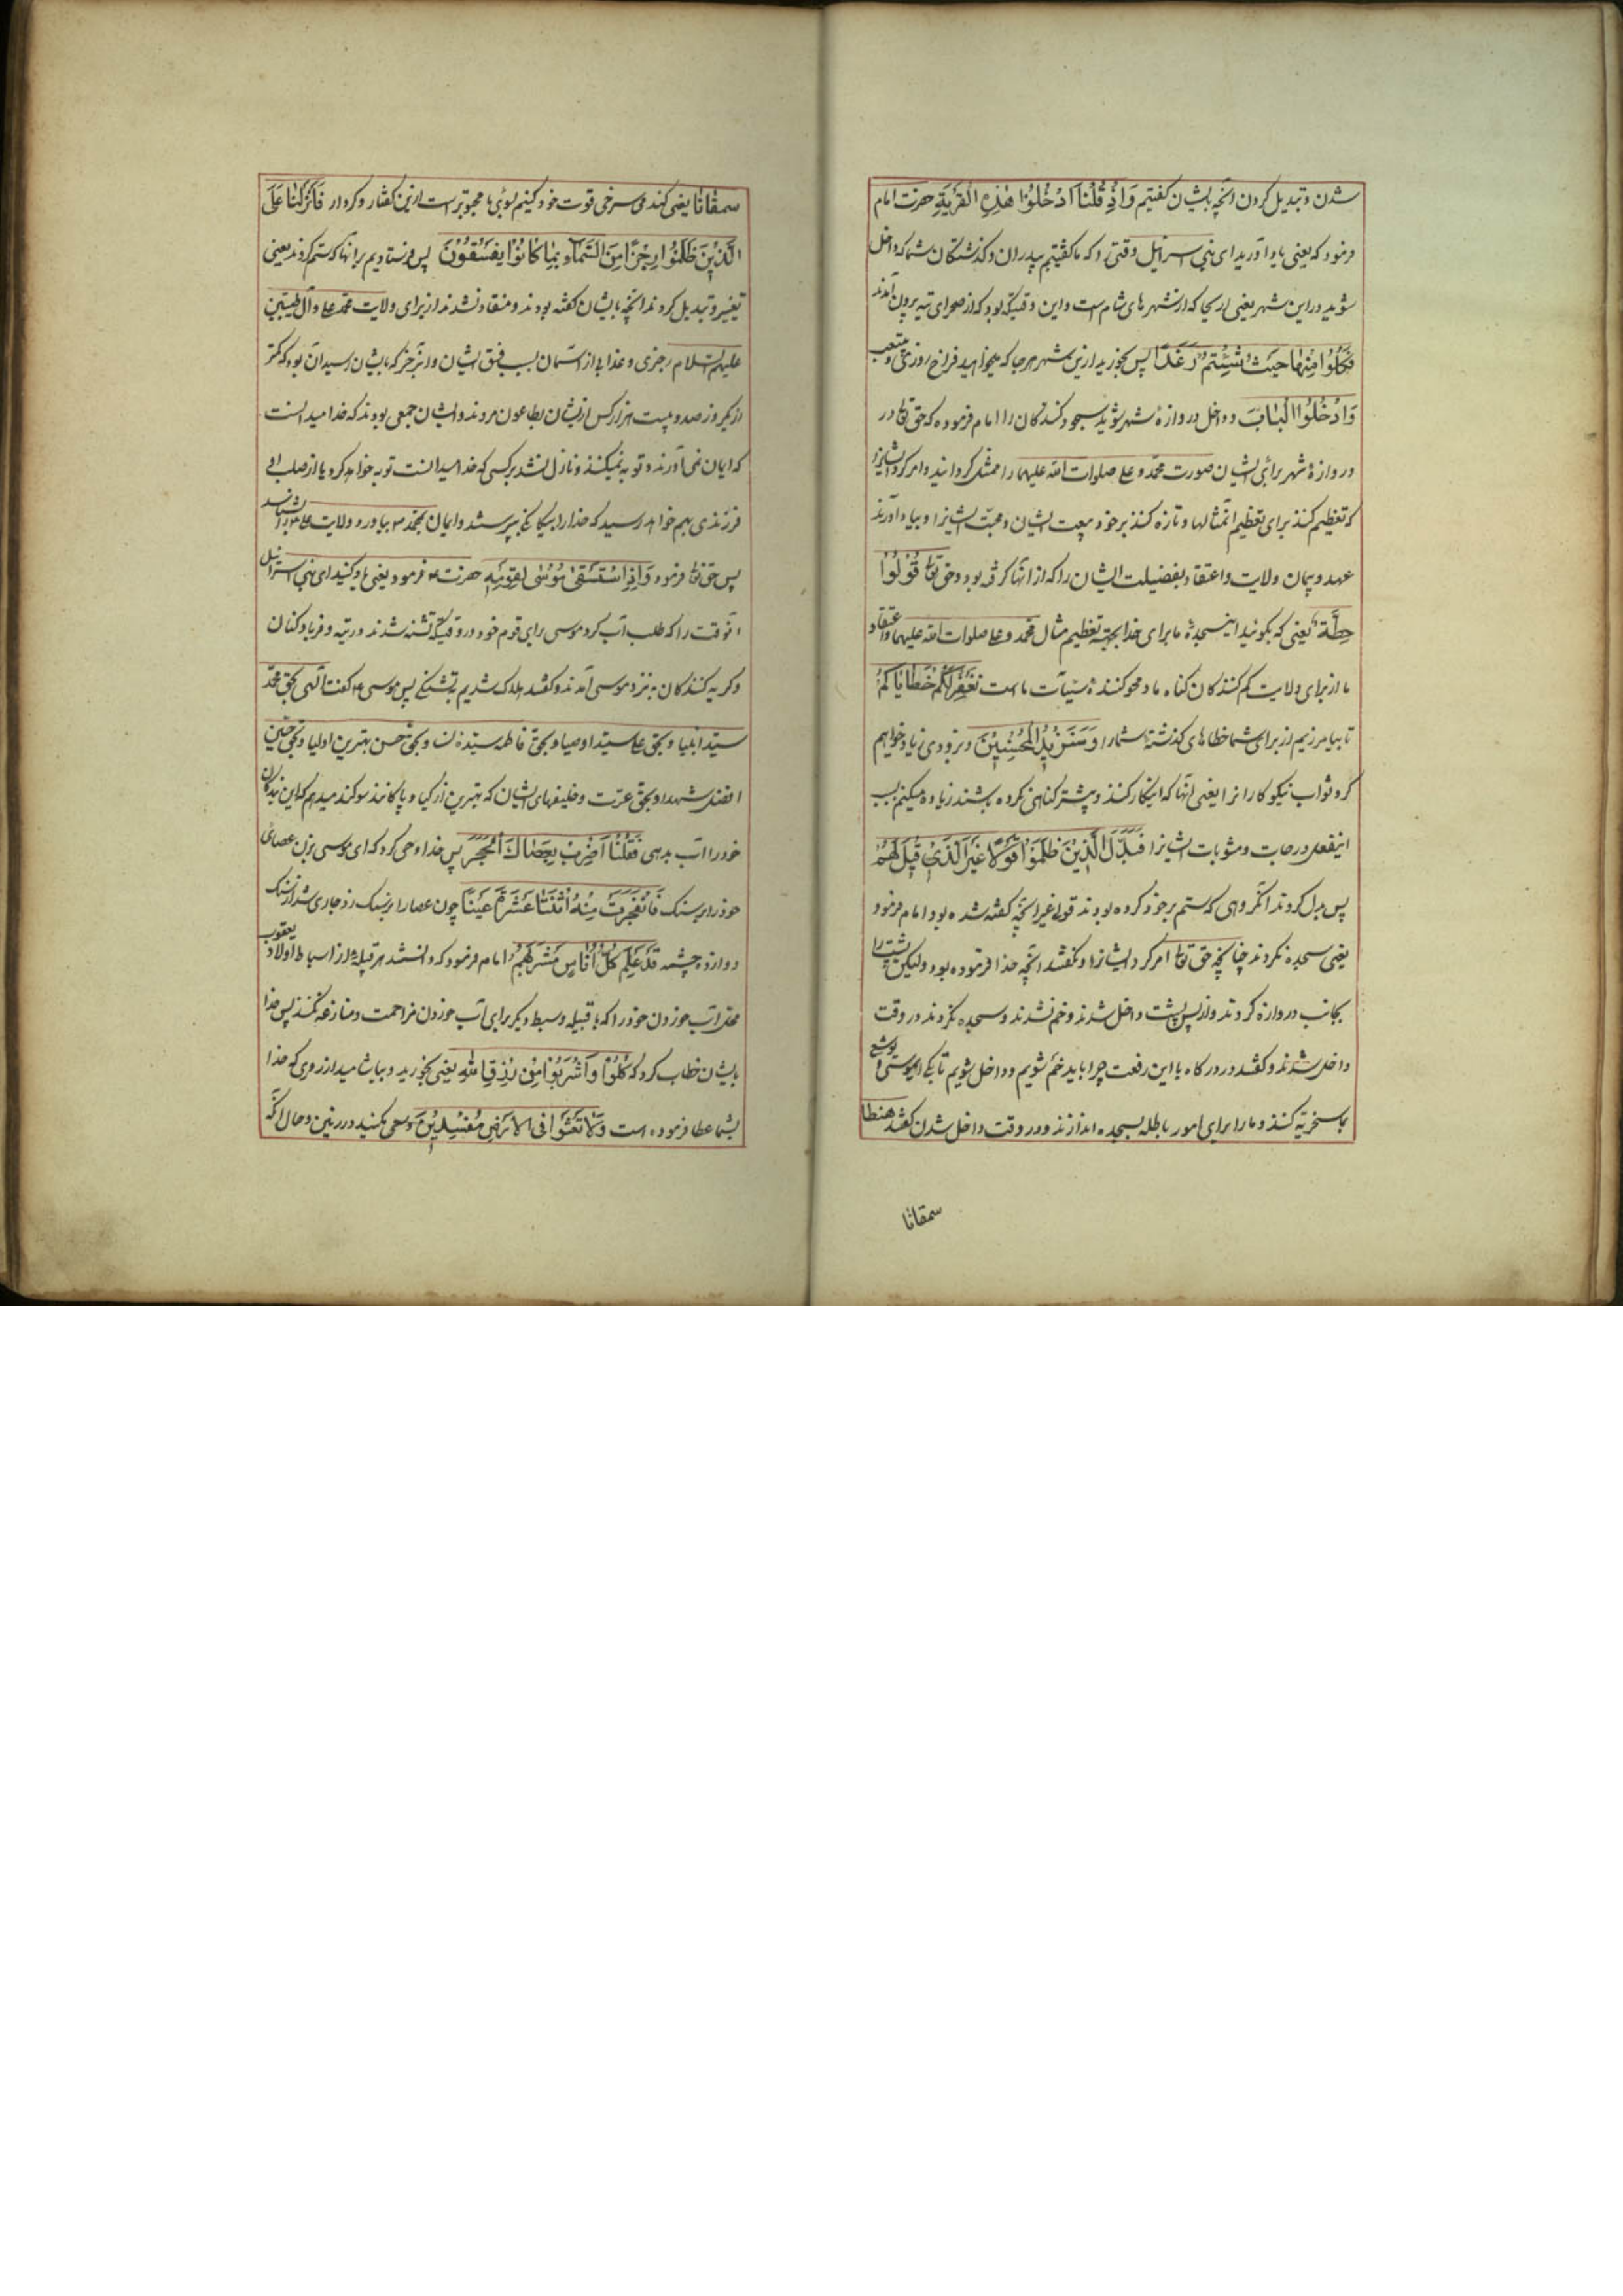 شدن و تبدیل کردن انچه بایشان کفتیم وَاِذْ قُلْنَا ادْخُلُوْا هٰذِهِ الْقَرْیَةَ حضرت امام
فرمود که یعنی یاد آورید ای بنی اسرائیل وقتی را که ما کفتیم بپدران و کذشتکان شما که داخل
شوید در این شهر یعنی اریحا که از شهرهای شام است و این وقتیکه بود که از صحرای تیه بیرون آمدند
فَکُلُوْا مِنْهَا حَیْثُ شِئْتُمْ رَغَدًا پس بخورید ازین شهر هر جا که میخواهید فراخ روزی و بیتعب
وَادْخُلُوا الْبَابَ و داخل دروازهٔ شهر شوید سجود کنندکان را امام فرموده که حق تعا در
دروازهٔ شهر برای ایشان صورت محمد و علی صلوات الله علیهما را ممثل کردانید و امر کرد ایشانرا
که تعظیم کنند برای تعظیم انمثالها و تازه کنند بر خود بیعت ایشان و محبت ایشانرا و بیاد آورند
عهد و پیمان ولایت و اعتقاد بفضیلت ایشان را که از انها کرفته بود و حق تعا قُوْلُوْا
حِطَّةٌ یعنی که بکوئید اینسجدهٔ ما برای خدا بجهة تعظیم مثال محمد و علی صلوات الله علیهما و اعتقاد
ما از برای ولایت کم کنندکان کناه ما و محو کنندهٔ سیّآت ما است نَغْفِرْ لَکُمْ خَطَایَاکُمْ
تا بیامرزیم از برای شما خطاهای کذشتهٔ شما را وَسَنَزِیْدُ الْمُحْسِنِیْنَ و بزودی زیاد خواهیم
کرد ثواب نیکوکارانرا یعنی آنها که اینکار کنند و پیشتر کناهی نکرده باشند زیاده میکنم بسبب
اینفعل درجات و مثوبات ایشانرا فَبَدَّلَ الَّذِیْنَ ظَلَمُوْا قَوْلًا غَیْرَ الَّذِیْ قِیْلَ لَهُمْ
پس بدل کردند انکروهی که ستم بر خود کرده بودند قولی غیر انچه کفته شده بود امام فرمود
یعنی سجده نکردند چنانکچه حق تعا امر کرد ایشانرا و نکفتند انچه خدا فرموده بود ولیکن پشت را
بجانب دروازه کردند و از پس پشت داخل شدند و خم نشدند و سجده نکردند در وقت
داخل شدند و کفتند در درکاه با این رفعت چرا باید خم شویم و داخل شویم تا بکی موسی و یوشع
بما سخریّه کنند و ما را برای امور باطله بسجده اندازند و در وقت داخل شدن کفتند هنطا
سمقانا
سمقانا یعنی کندم سرخی قوت خود کنیم بما محبوبتر است ازین کفتار و کردار فَاَنْزَلْنَا عَلَی
الَّذِیْنَ ظَلَمُوْا رِجْزًا مِنَ السَّمَآءِ بِمَا کَانُوْا یَفْسُقُوْنَ پس فرستادیم بر انها که ستم کردند یعنی
تغییر و تبدیل کردند انچه بایشان کفته بودند و منقاد نشدند از برای ولایت محمد و علی و آل طیبین
علیهم السلام رجزی و عذابی از آسمان بسبب فسق ایشان و ان رجز که بایشان رسید آن بود که کمتر
از یکروز صد و بیست هزار کس از ایشان بطاعون مردند و ایشان جمعی بودند که خدا میدانست
که ایمان نمی آورند و توبه نمیکنند و نازل نشد بر کسی که خدا میدانست توبه خواهد کرد یا از صلب او
فرزندی بهم خواهد رسید که خدا را بیکانکی بپرستد و ایمان بمحمد بیاورد و ولایت علی را بشناسد
پس حق تعا فرمود وَاِذِ اسْتَسْقٰی مُوْسٰی لِقَوْمِهٖ حضرت فرمود یعنی یاد کنید ای بنی اسرائیل
انوقت را که طلب آب کرد موسی برای قوم خود در وقتیکه تشنه شدند در تیه و فریاد کنان
و کریه کنندکان به نزد موسی آمدند و کفتند هلاک شدیم به تشنکی پس موسی کفت الهی بحق محمد
سید انبیا و بحق علی سید اوصیا و بحق فاطمه سیدهٔ نسا و بحق حسن بهترین اولیا و بحق حسین
افضل شهدا و بحق عترت و خلیفهای ایشان که بهترین ازکیا و پاکانند سوکند میدهم که این بندکان
خود را آب بدهی فَقُلْنَا اضْرِبْ بِعَصَاکَ الْحَجَرَ پس خدا وحی کرد که ای موسی بزن عصای
خود را بر سنک فَانْفَجَرَتْ مِنْهُ اثْنَتَا عَشْرَةَ عَیْنًا چون عصا را بر سنک زد جاری شد از سنک
دوازده چشمه قَدْ عَلِمَ کُلُّ اُنَاسٍ مَشْرَبَهُمْ امام فرمود که دانستند هر قبیلهٔ از اسباط اولاد یعقوب
محل آب خوردن خود را که با قبیله و سبط دیکر برای آب خوردن مزاحمت و منازعه نکنند پس خدا
بایشان خطاب کرد که کُلُوْا وَاشْرَبُوْا مِنْ رِزْقِ اللّٰهِ یعنی بخورید و بیاشامید از روزی که خدا
بشما عطا فرموده است وَلَا تَعْثَوْا فِی الْاَرْضِ مُفْسِدِیْنَ و سعی مکنید در زمین و حال انکه